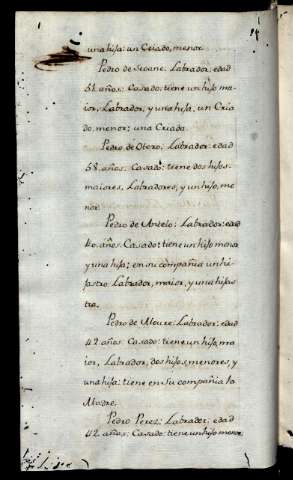 una hija: un Criado, menor
Pedro de Seoane: Labrador: edad
51. años: Casado: tiene un hijo ma
ior, Labrador, y una hija: un Cria
do, menor; una Criada.
Pedro de Otero: Labrador: edad
58. años. Casado: tiene dos hijos.
maiores, Labradores, y un hijo, me
nor.
Pedro de Antelo: Labrador: edad
40. años. Casado: tiene un hijo menor
y una hija; en su compañia un hi
jastro Labrador, maior, y una hijas
tra.
Pedro de: Labrador; edad
42 años. Casado: tiene un hijo, ma
ior, Labrador, dos hijos, menores, y
una hija: tiene en su compañia la
Madre.
Pedro Perez: Labrador, edad
42. años. Casado: tiene un hijo menor